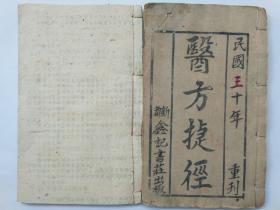 民國三十年 重刊
醫方捷徑
鑫記書莊出版